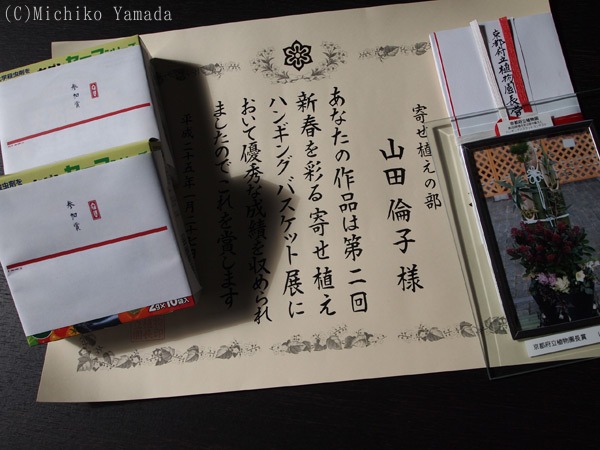 (C)Michiko Yamada
寄せ植えの部
山田 倫子 様
あなたの作品は第二回
新春を彩る寄せ植え
ハンギングバスケット展に
おいて優秀な成績を収められ
ましたのでこれを賞します
平成二十五年一月二十七
京都府立植物園長賞
京都府立植物園
京都府立植物園長賞
参加賞
参加賞
2g×10袋入